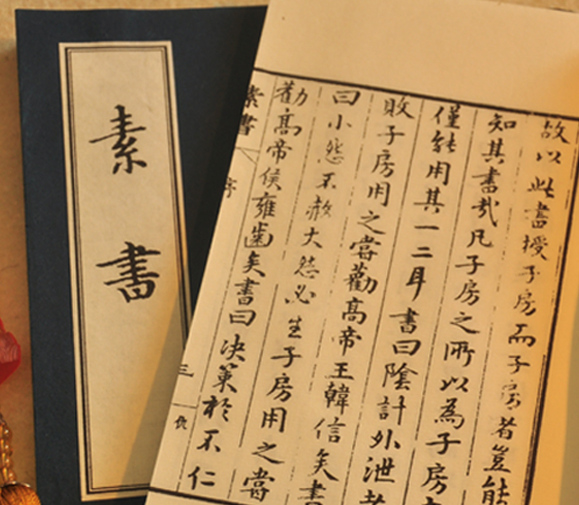 故以此書授子房而子房者豈能
知其書哉凡子房之所以為子房
僅能用其一二耳書曰陰計外泄者
敗子房用之嘗勸高帝王韓信矣書
曰小怨不赦大怨必生子房用之嘗
勸高帝侯雍齒矣書曰決策於不仁
素書
序
三
素書